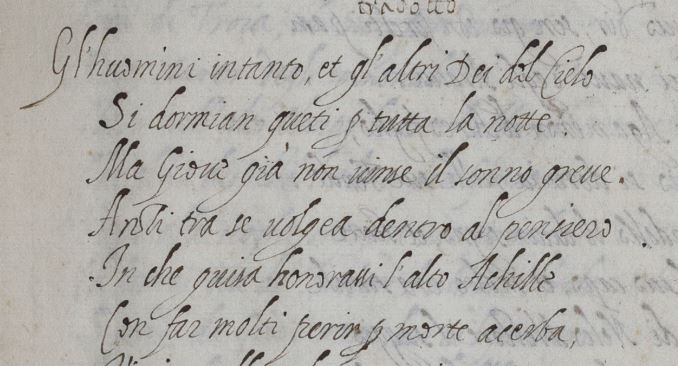 tradotto
Gl'huomini intanto, et gl'altri Dei del Cielo
Si dormian queti ꝑ tutta la notte.
Ma Giove già non vinse il sonno greve.
Anzi tra se volgea dentro al pensiero
In che guisa honorassi l'alto Achille
Con far molti perir ꝑ morte acerba,